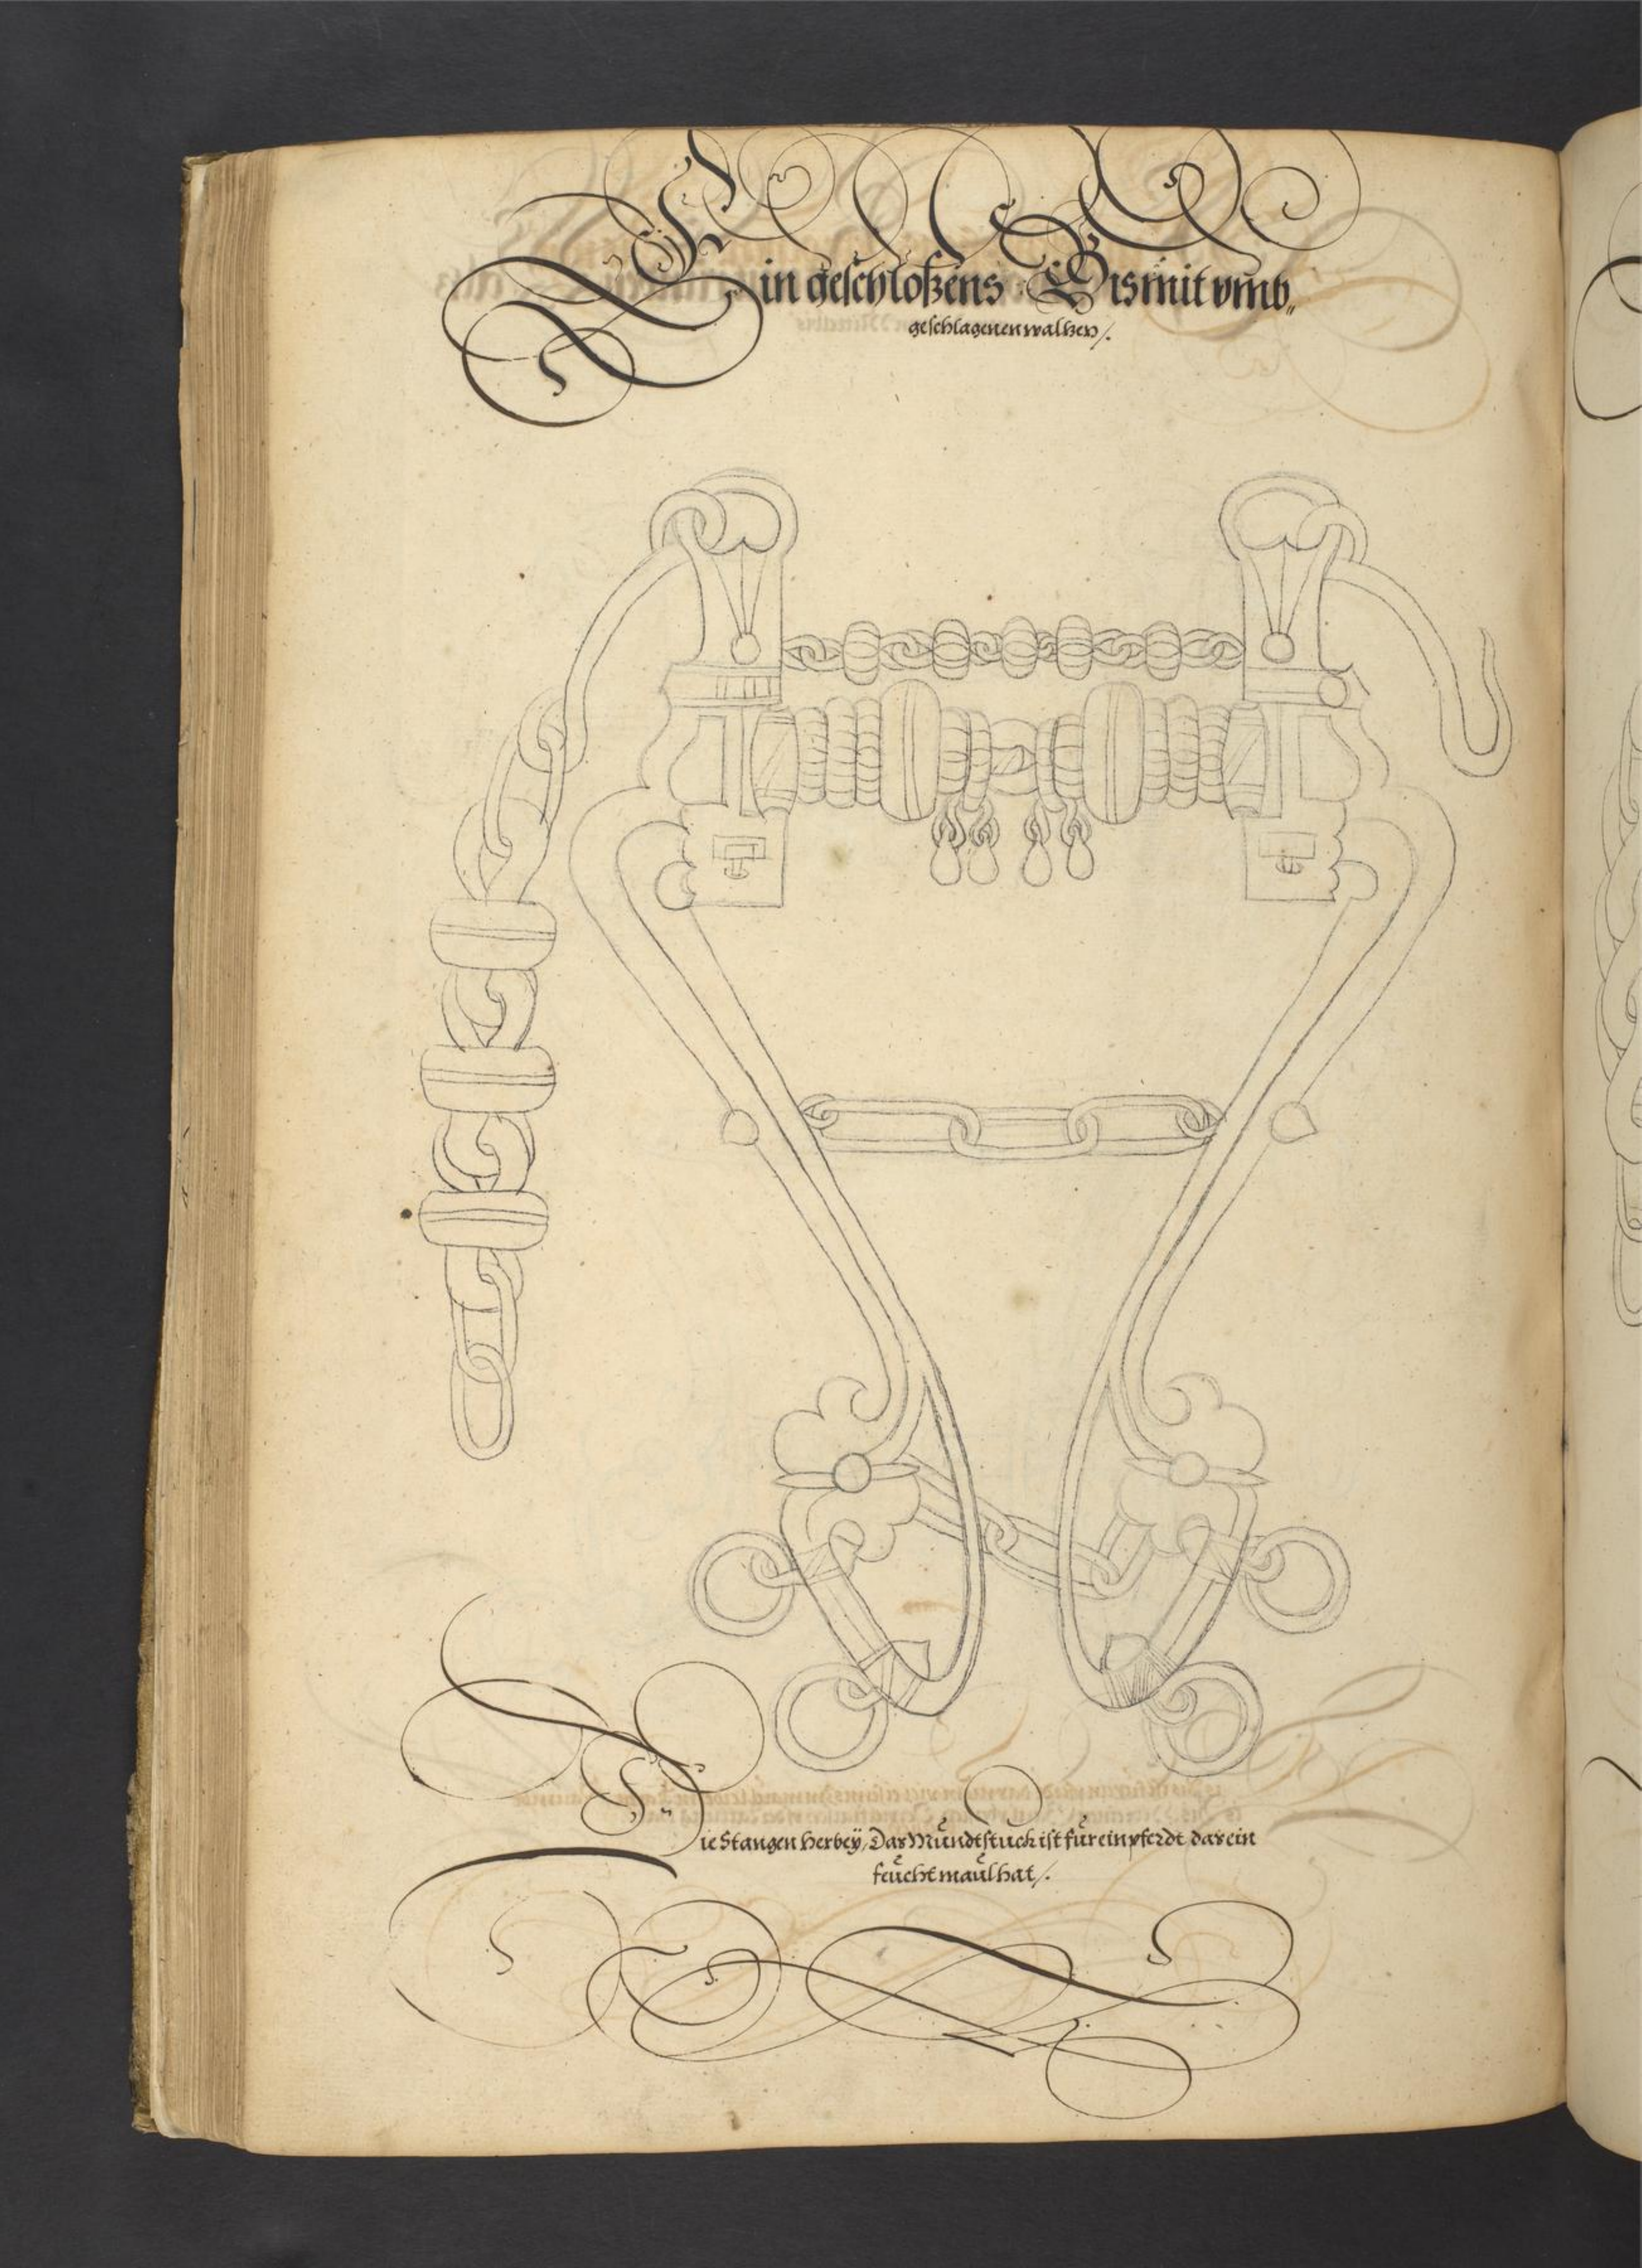 Ein geschloßens Bis mit vmb„
geschlagenen waltzen/.
Die Stangen herbeÿ, Das Mŭndtstuck ist fŭr ein pferdt, das ein
feŭcht maŭl hat/.